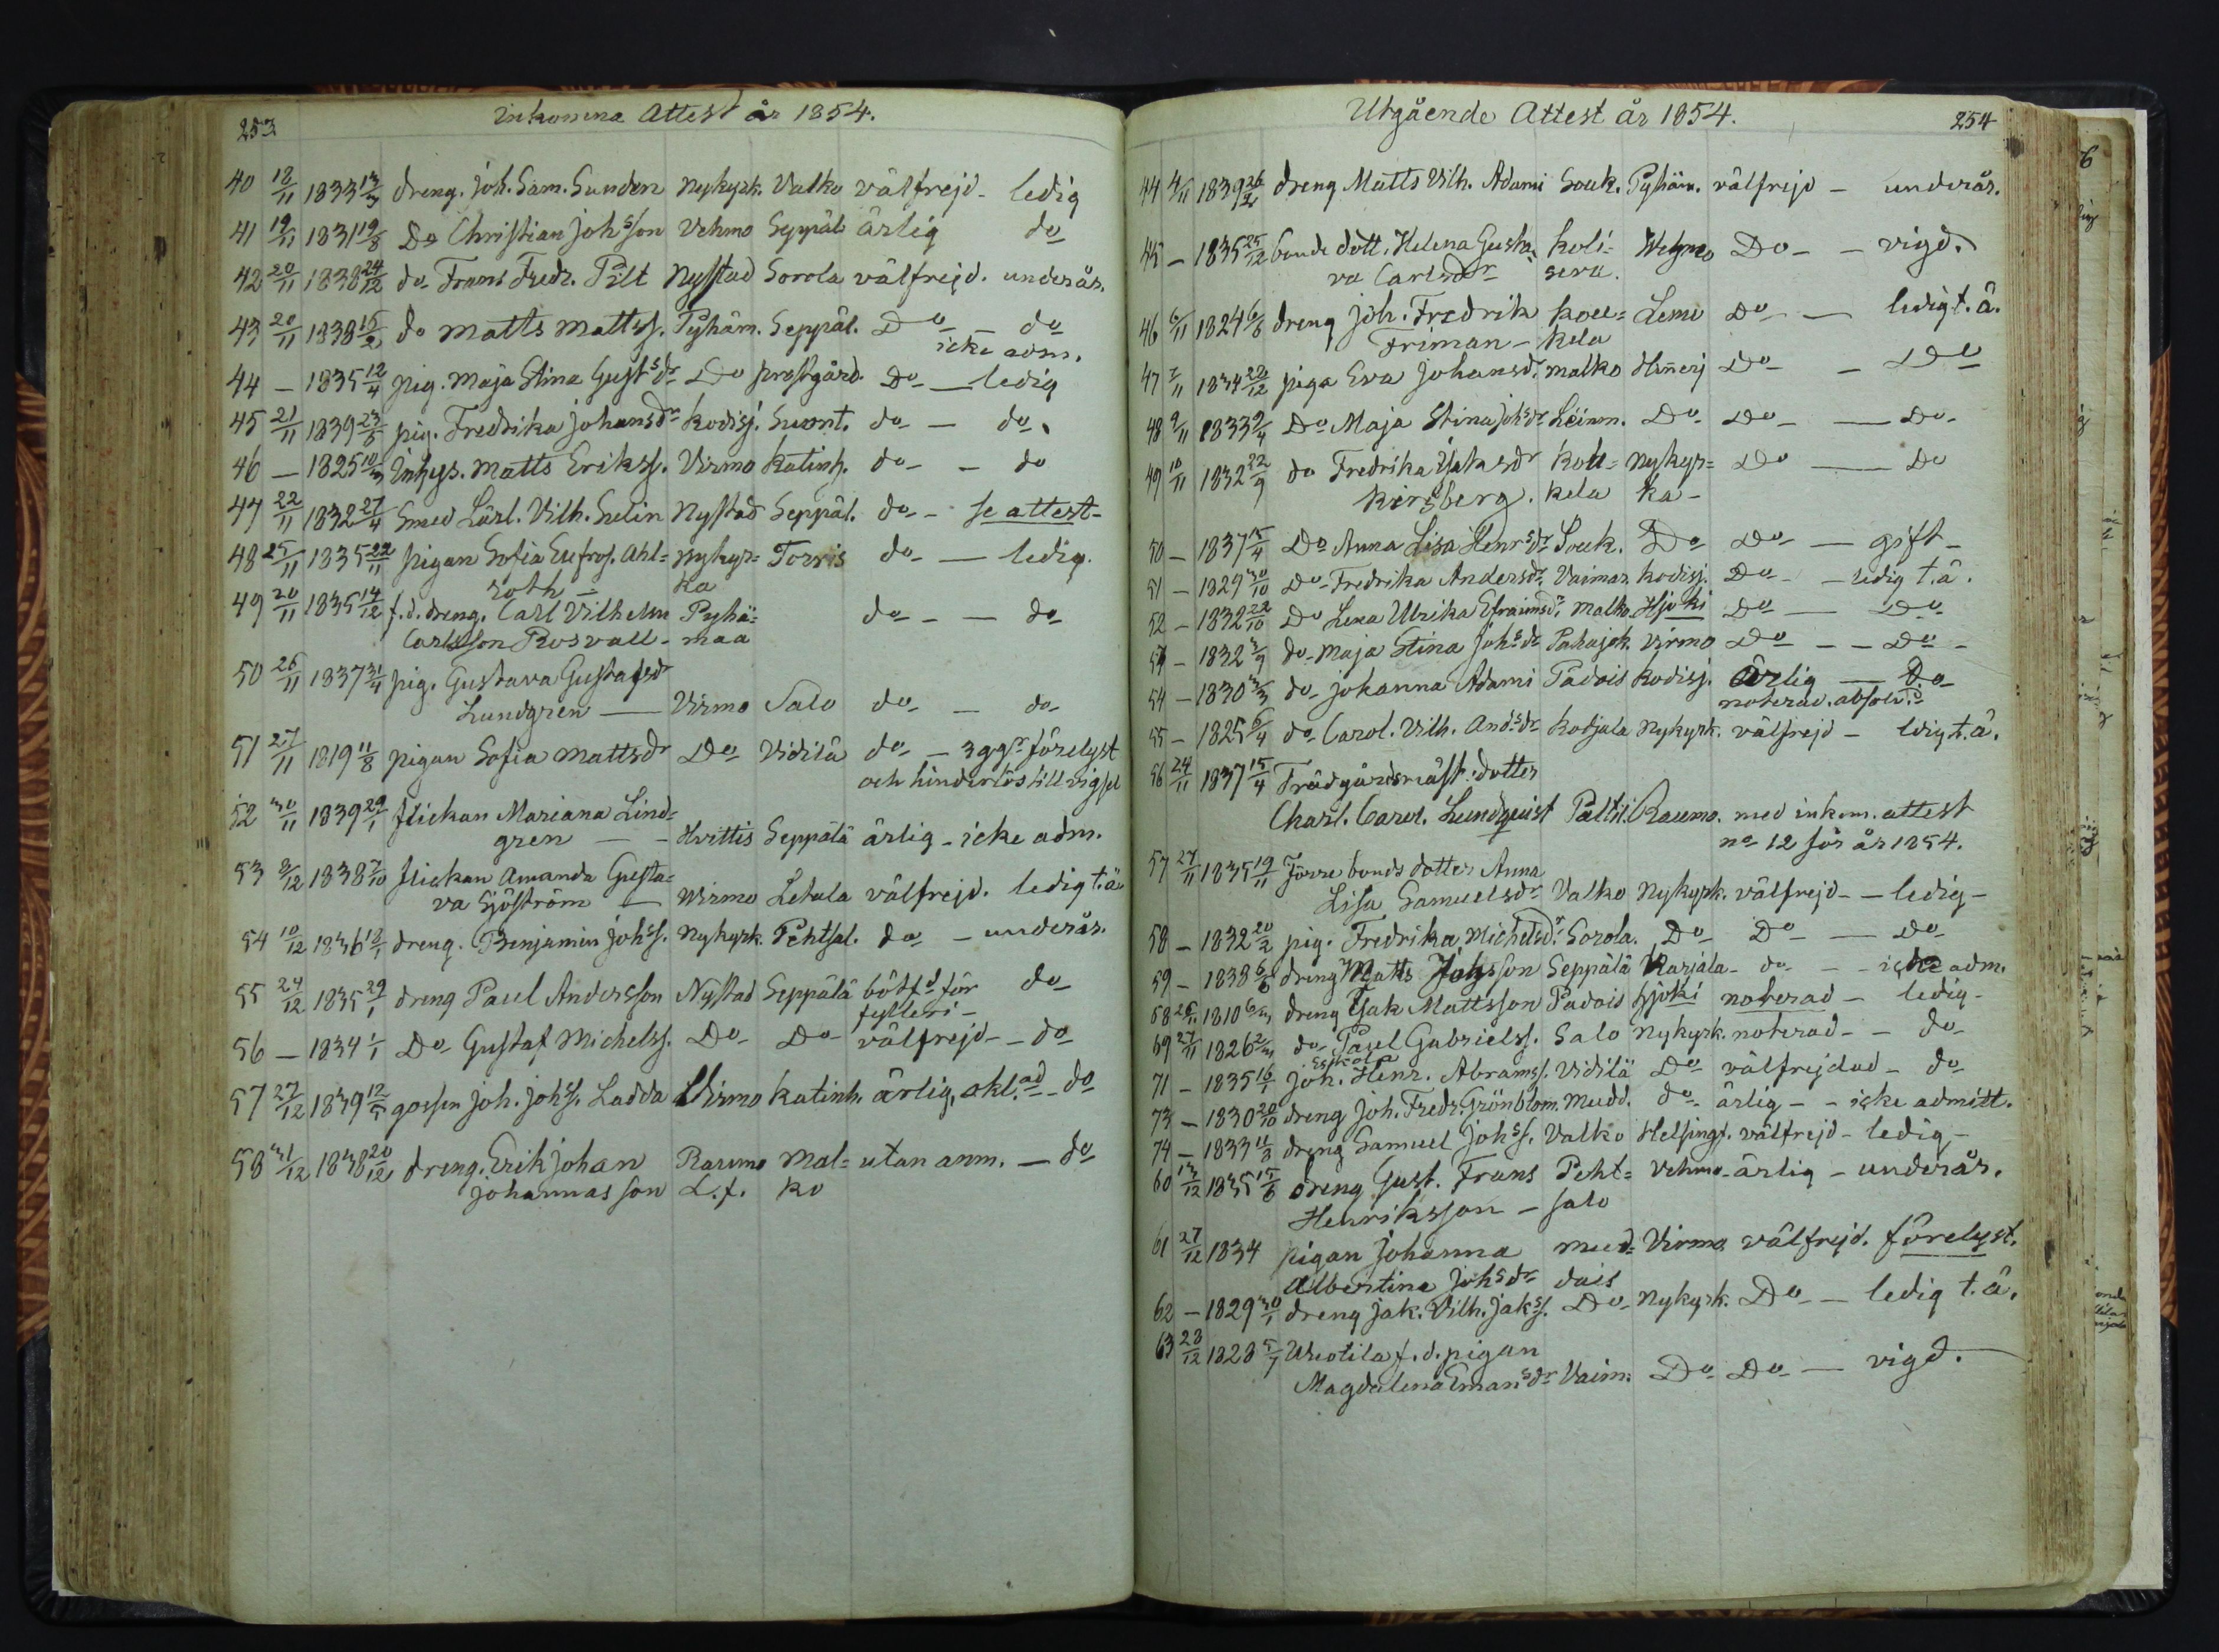 253
Inkomna Attest år 1854.
40 18/11 1833 13/3 dreng. Joh. Sam. Sunden Nykyrk. Valko välfrejd - ledig
41 19/11 1831 19/8 Do Christian Johsson Vehmo Seppäl. ärlig do
42 20/11 1838 24/12 do Frans Fredr. Pilt Nystad Sorola välfrejd. underår.
43 20/11 1838 16/2 do Matts Mattss. Pyhäm. Seppäl. Do - do
icke adm.
44 - 1835 12/4 pig. Maja Stina Gustsdr Do prestgård. Do - ledig
45 21/11 1839 23/5 pig. Fredrika Johansdr Kodisj. Suont. do - do.
46 - 1825 10/3 Inhys. Matts Erikss. Virmo Katinh. do - do
47 22/11 1832 27/4 Smed Lärl. Vilh. Selin Nystad Seppäl. do - se attest -
48 25/11 1835 22/11 pigan Sofia Eufros. Ahl= Nykyr= Torris do - ledig.
roth - ka
49 20/11 1835 14/12 f.d. dreng. Carl Vilhelm Pyhä= do - - do
Carlsson Rosvall - maa
50 26/11 1837 31/4 pig. Gustava Gustafsdr
Lundgren - Virmo Salo do - do
51 27/11 1819 11/8 pigan Sofia Mattsdr Do Vidilä do - 3 ggr förelyst
och hinderlös till vigsel
52 30/11 1839 29/1 flickan Mariana Lind=
gren - - Hvittis Seppälä ärlig - icke adm.
53 8/12 1838 7/10 flickan Amanda Gusta=
va Sjöström - Wirmo Letala välfrejd. ledig t.ä
54 10/12 1836 18/1 dreng. Benjamin Johss. Nykyrk. Pehtsal. do - underår.
55 24/12 1835 29/1 dreng Paul Andersson Nystad Seppälä bött d för do
fylleri -
56 - 1834 1/1 Do Gustaf Michelss. Do Do välfrejd - do
57 27/12 1839 12/5 gossen Joh. Johss. Ladda Virmo Katinh. ärlig, okl.ad - do
58 31/12 1838 20/12 dreng. Erik Johan Raumo Mal= utan anm. - do
Johannasson L.f. ko
Utgående Attest år 1854.
254
44 4/11 1839 26/2 dreng Matts Vilh. Adami Souk. Pyhäm. välfrejd - underår.
45 - 1835 25/12 bonde dott. Helena Gusta= Koli= Wehmo Do - - vigd.
va Carlsdr sera.
46 6/11 1824 6/8 dreng Joh. Fredrik Kou= Lemo Do - ledig t. ä.
Friman - kela
47 7/11 1834 22/12 piga Eva Johansdr. Malko Hinnerj Do - - Do
48 9/11 1833 9/4 Do Maja Stina Johsdr Leinm. Do Do - - Do
49 10/11 1832 22/9 do Fredrika Isaksdr Kou= Nykyr= Do - Do
Kirsberg. kela ka -
50 - 1837 15/4 Do Anna Lisa Henrsdr Souk. Do Do - gift -
51 - 1829 30/10 Do Fredrika Andersdr. Vaimar. Kodisj. Do - ledig t.ä.
52 - 1832 22/10 Do Lena Ulrika Efraimsdr. Malko Hjoki Do - Do
53 - 1832 3/9 do Maja Stina Johsdr Pahojok. Virmo Do - - Do -
54 - 1830 3/3 do Johanna Adami Padois Kodisj. Ärlig - Do
noterad. absolv.d
55 - 1825 6/4 do Carol. Vilh. Andsdr Kodjala Nykyrk. välfrejd - ledig t. ä.
56 24/11 1837 15/4 Trädgårdsmäst. dotter
Charl. Carol. Lundquist Palttil. Raumo. med inkom. attest
no 12 för år 1854.
57 27/11 1835 19/11 Förre bonds dotter Anna
Lisa Samuelsdr Valko Nykyrk. välfrejd - - ledig -
58 - 1832 20/2 pig. Fredrika Michelsdr. Sorola. Do Do - Do
59 - 1838 6/6 dreng Matts Johsson Seppälä Karjala - do - - icke adm.
68 26/11 1810 dreng Isak Mattsson Padois Hjoki noterad - ledig -
69 27/11 1826 do Paul Gabrielss. Salo Nykyrk. noterad - - do
Eskola
71 - 1835 16/1 Joh. Henr. Abramss. Vidilä Do välfrejdad - do
73 - 1830 20/10 dreng Joh. Fredr. Grönblom. Mudd. do ärlig - - icke admitt.
74 - 1833 11/8 dreng Samuel Johss. Valko Helsingf. välfrejd - ledig -
60 13/12 1835 15/6 dreng Gust. Frans Peht= Vehmo - ärlig - underår.
Henriksson - salo
61 27/12 1834 pigan Johanna Mud= Virmo välfrejd. förelyst.
Albertina Johsdr dais
62 - 1829 30/1 dreng Jak. Vilh. Jakss. Do Nykyrk. Do - ledig t. ä.
63 28/12 1828 5/7 Uhotila f. d. pigan
Magdalena Emansdr Vaim. Do Do - vigd.